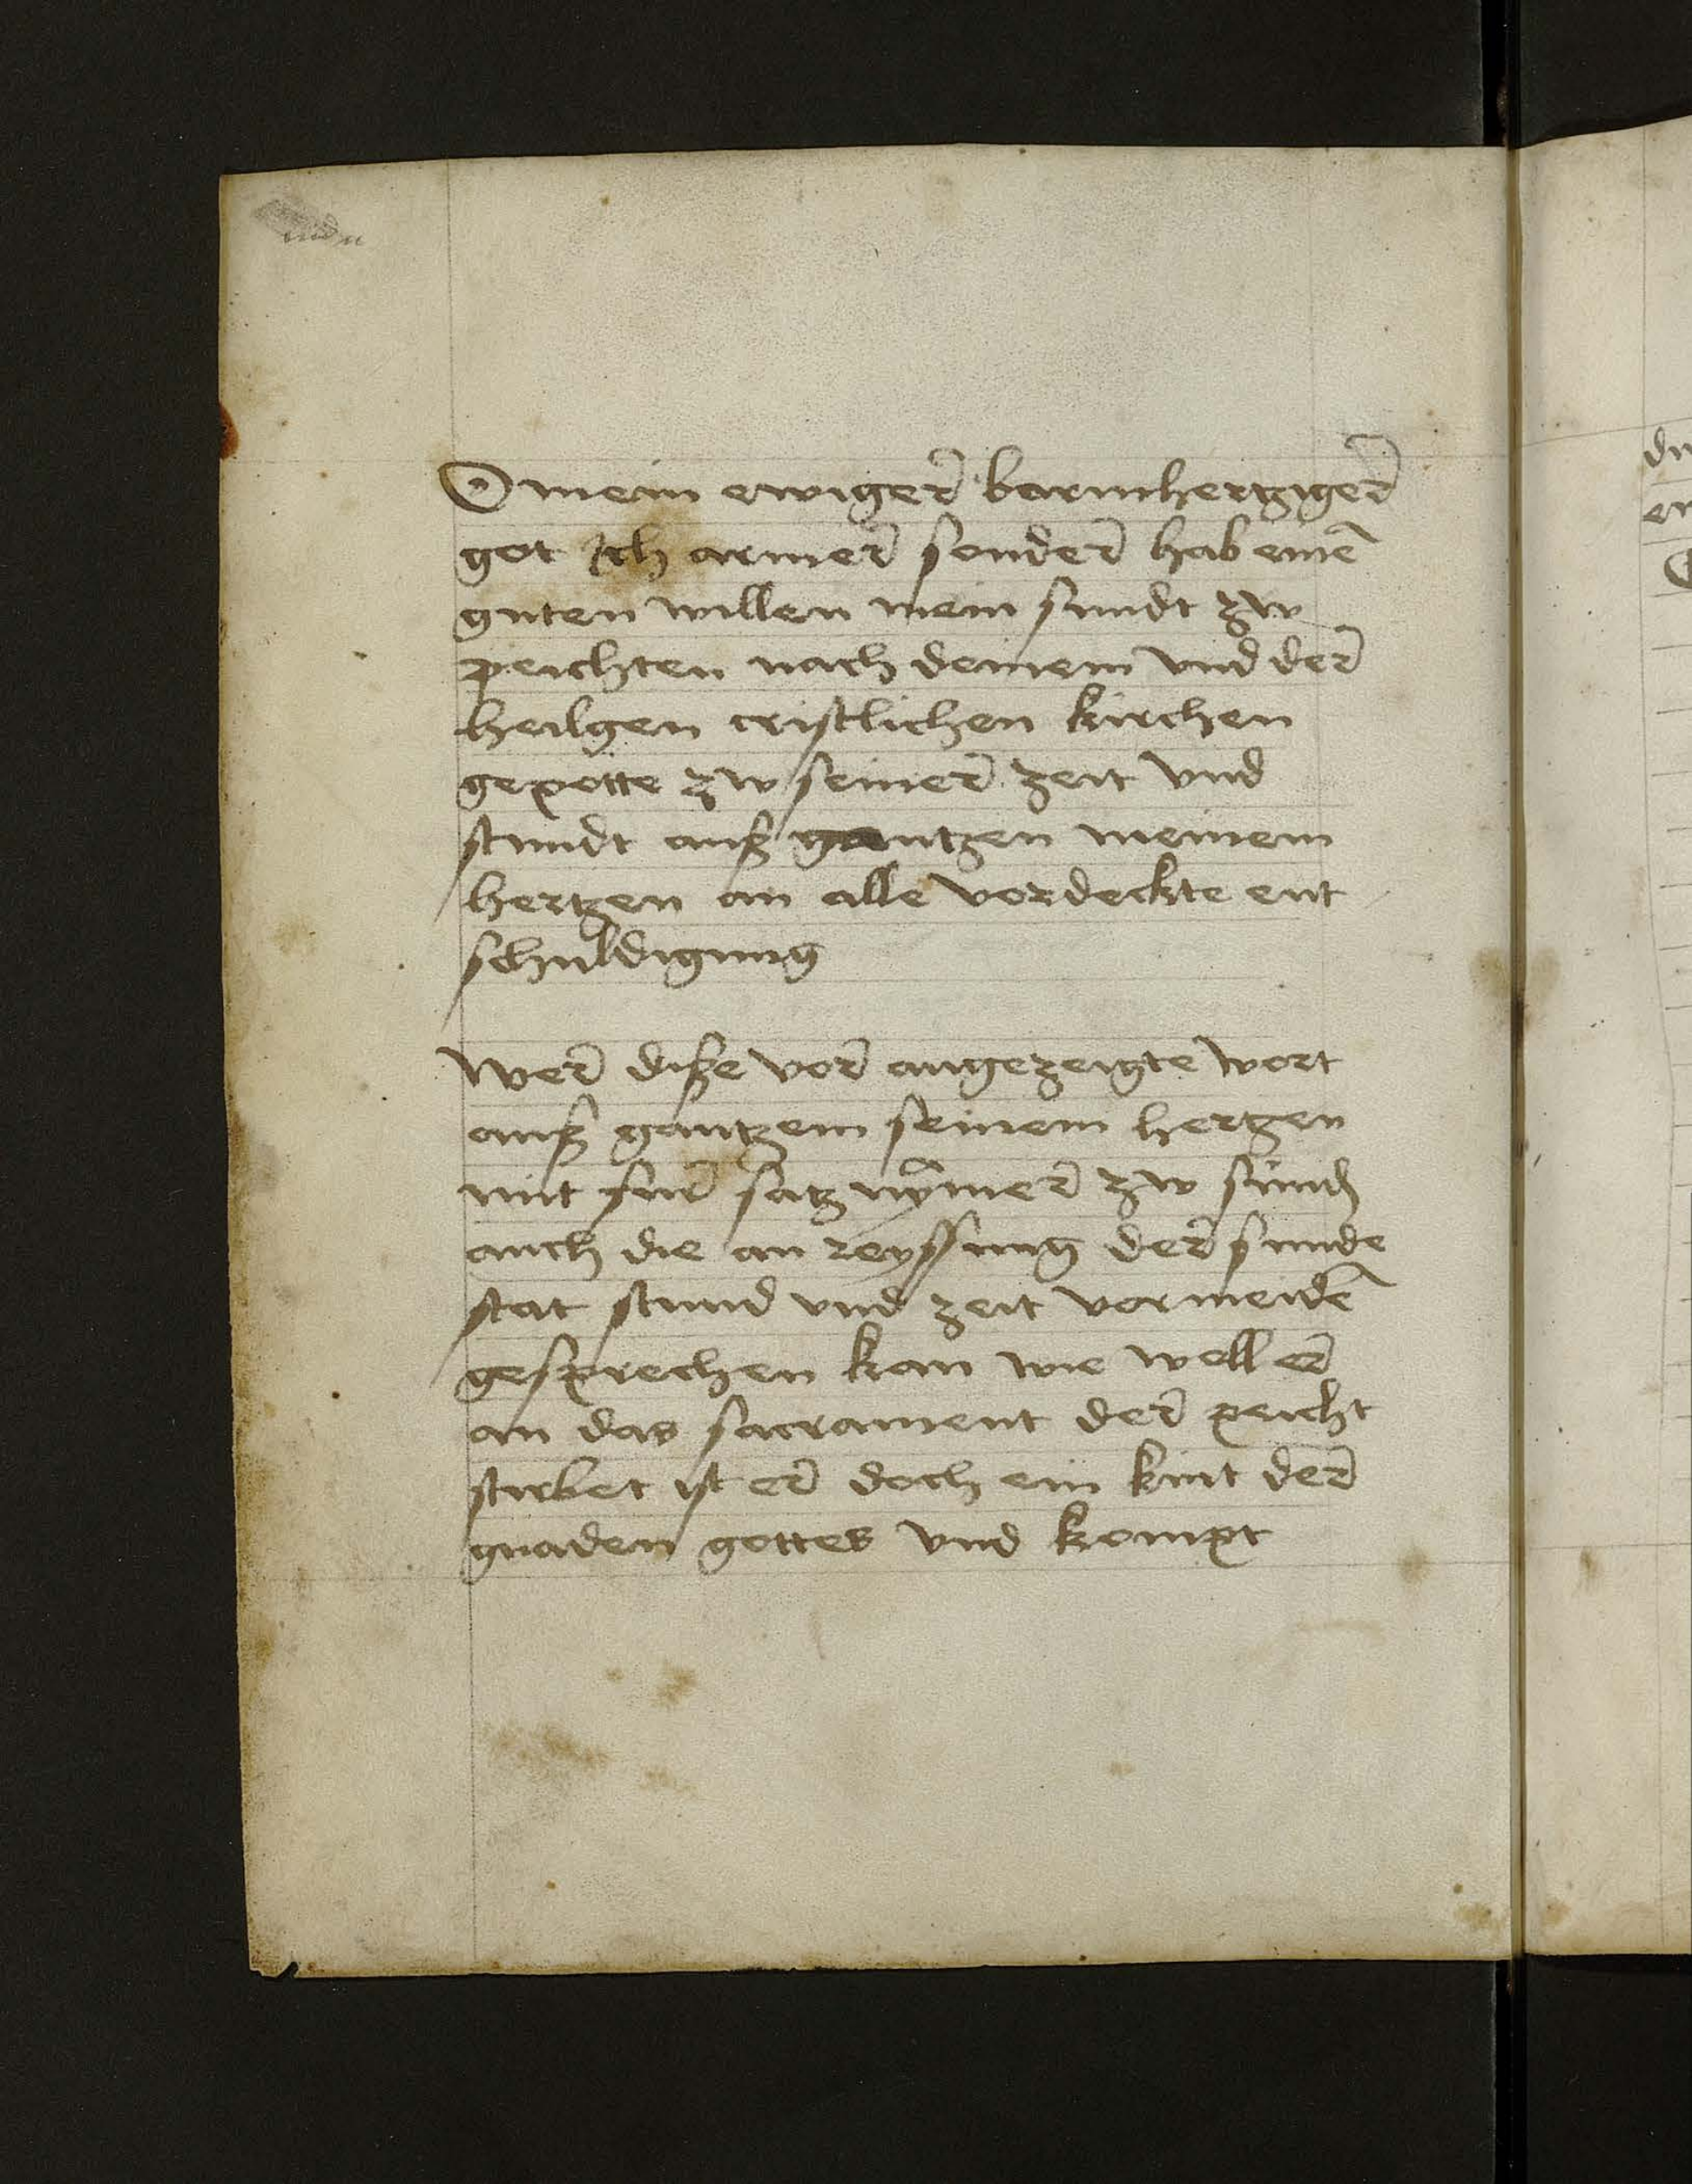 O mein ewiger barmhertziger
got Ich armer sonder hab einē
guten willen mein sundt zw
peichten nach deinem vnd der
heilgen cristlichen kirchen
gepotte zw seiner zeit vnd
stundt auß gantzen meinem
hertzen an alle vordeckte ent
schuldigung
Wer diße vor angezeigte wort
auß gantzem seinem hertzen
mit fur satz nÿmer zw sund
auch die an reyssung der sunde
stat stund vnd zeit vormeidē
gesprechen kan wie woll er
an das sacrament der peicht
stirbet ist er doch ein kint der
gnaden gottes vnd kompt